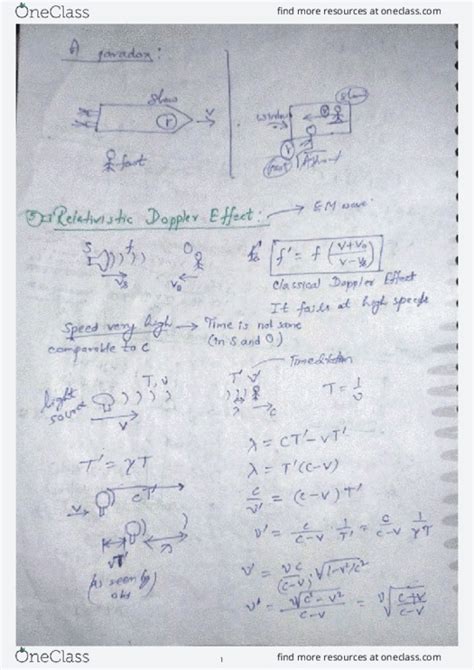 OneClass
find more resources at oneclass.com
A) paradox:
slow
v
fast
slow
window
fast
5) Relativistic Doppler Effect: → EM wave
S f O
v_s v_o
f' = f (v+v_o / v-v_s)
Classical Doppler Effect
It fails at high speeds
Speed very high → Time is not same
comparable to c (in S and O)
Time dilation
T, ν
T' ν'
T = 1/ν
light
source
v
c
λ = cT' - vT'
T' = γT
λ = T'(c-v)
v cT'
c/ν' = (c-v)T'
vT' λ
ν' = c/(c-v) · 1/T' = c/(c-v) 1/γT
(as seen by
obs)
ν' = νc/(c-v) · √1-v²/c²
ν' = ν√c²-v² / c-v = ν√(c+v / c-v)
OneClass
1
find more resources at oneclass.com